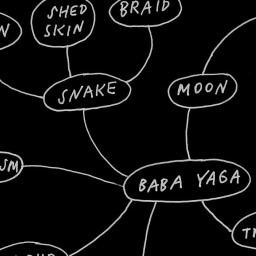 SHED
SKIN
BRAID
SNAKE
MOON
BABA YAGA